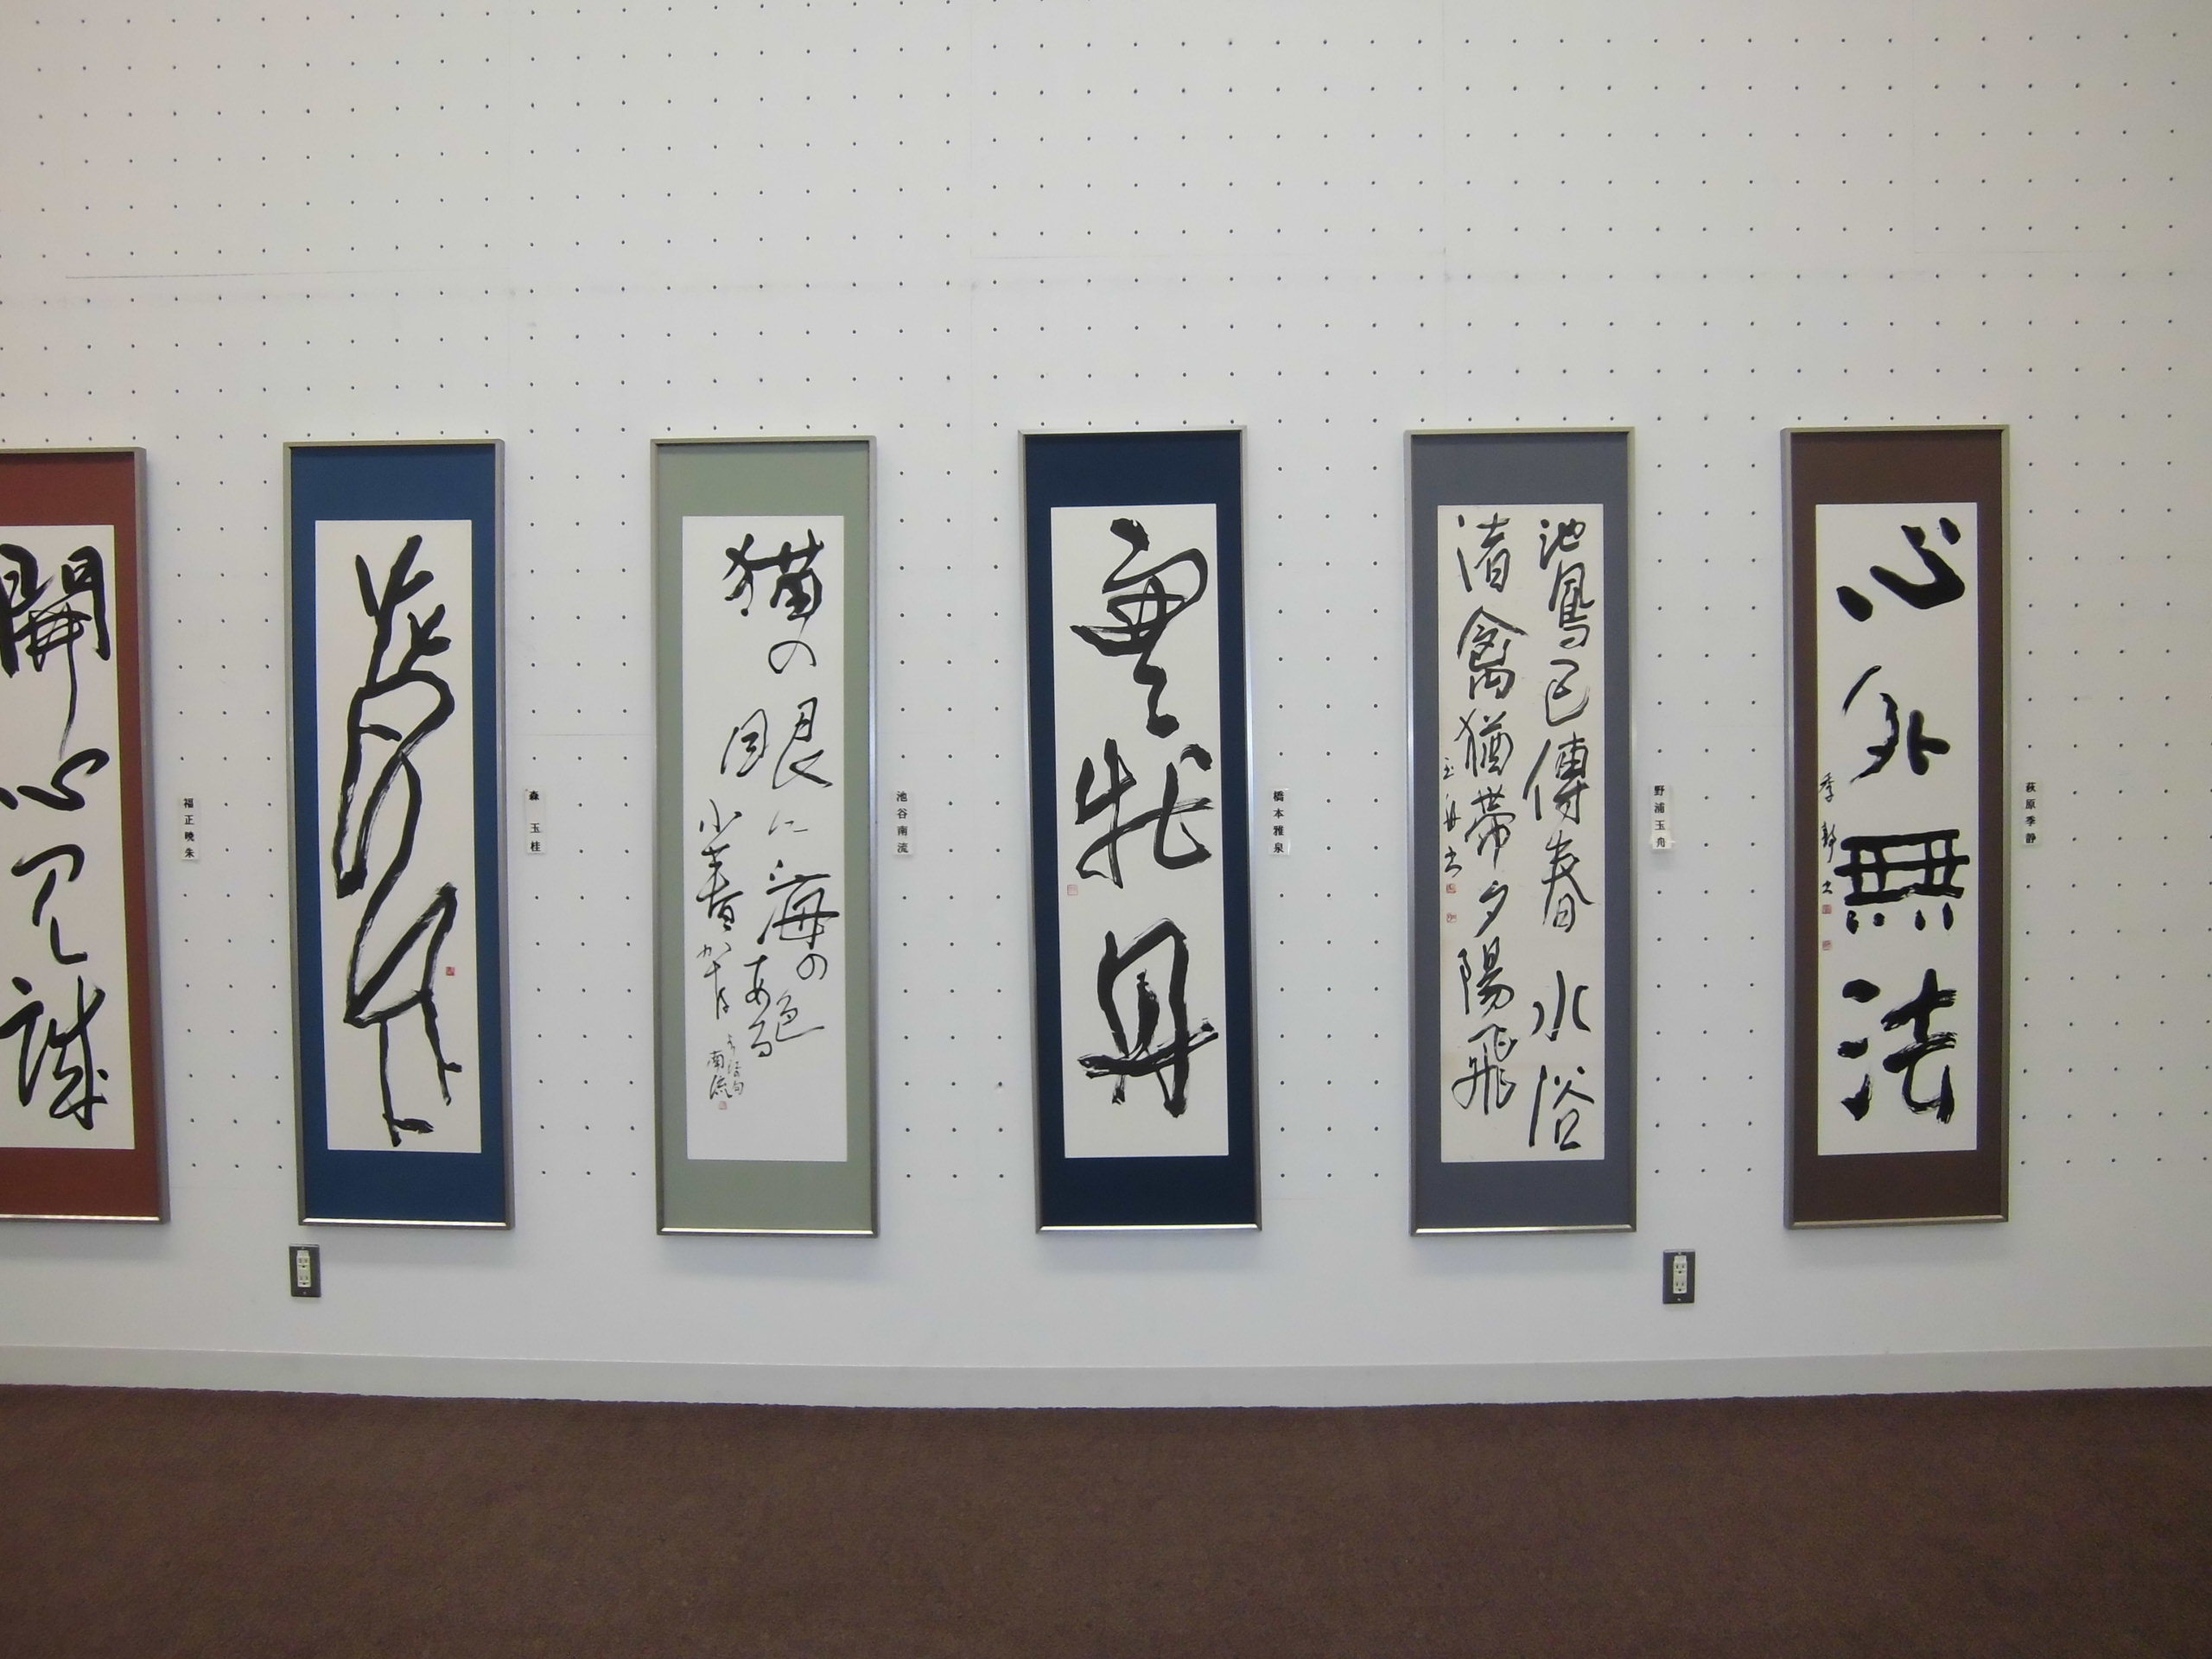 心外無法
季静書
萩原季静
池鳳已傳春水俗
渚禽猶帯夕陽飛
玉舟書
野浦玉舟
牡丹
橋本雅泉
猫の眼に海の色
ある
小春かな
南流
池谷南流
森玉桂
開心見誠
福正暁朱